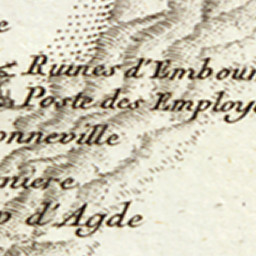 Ruines d'Embour
Poste des Employe
onneville
niere
p d'Agde